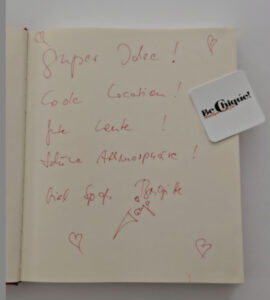 Super Idee!
Coole Location!
Gute Leute!
Schöne Atmosphäre!
Viel Spaß Brigitte
Tanja
Be Chique!